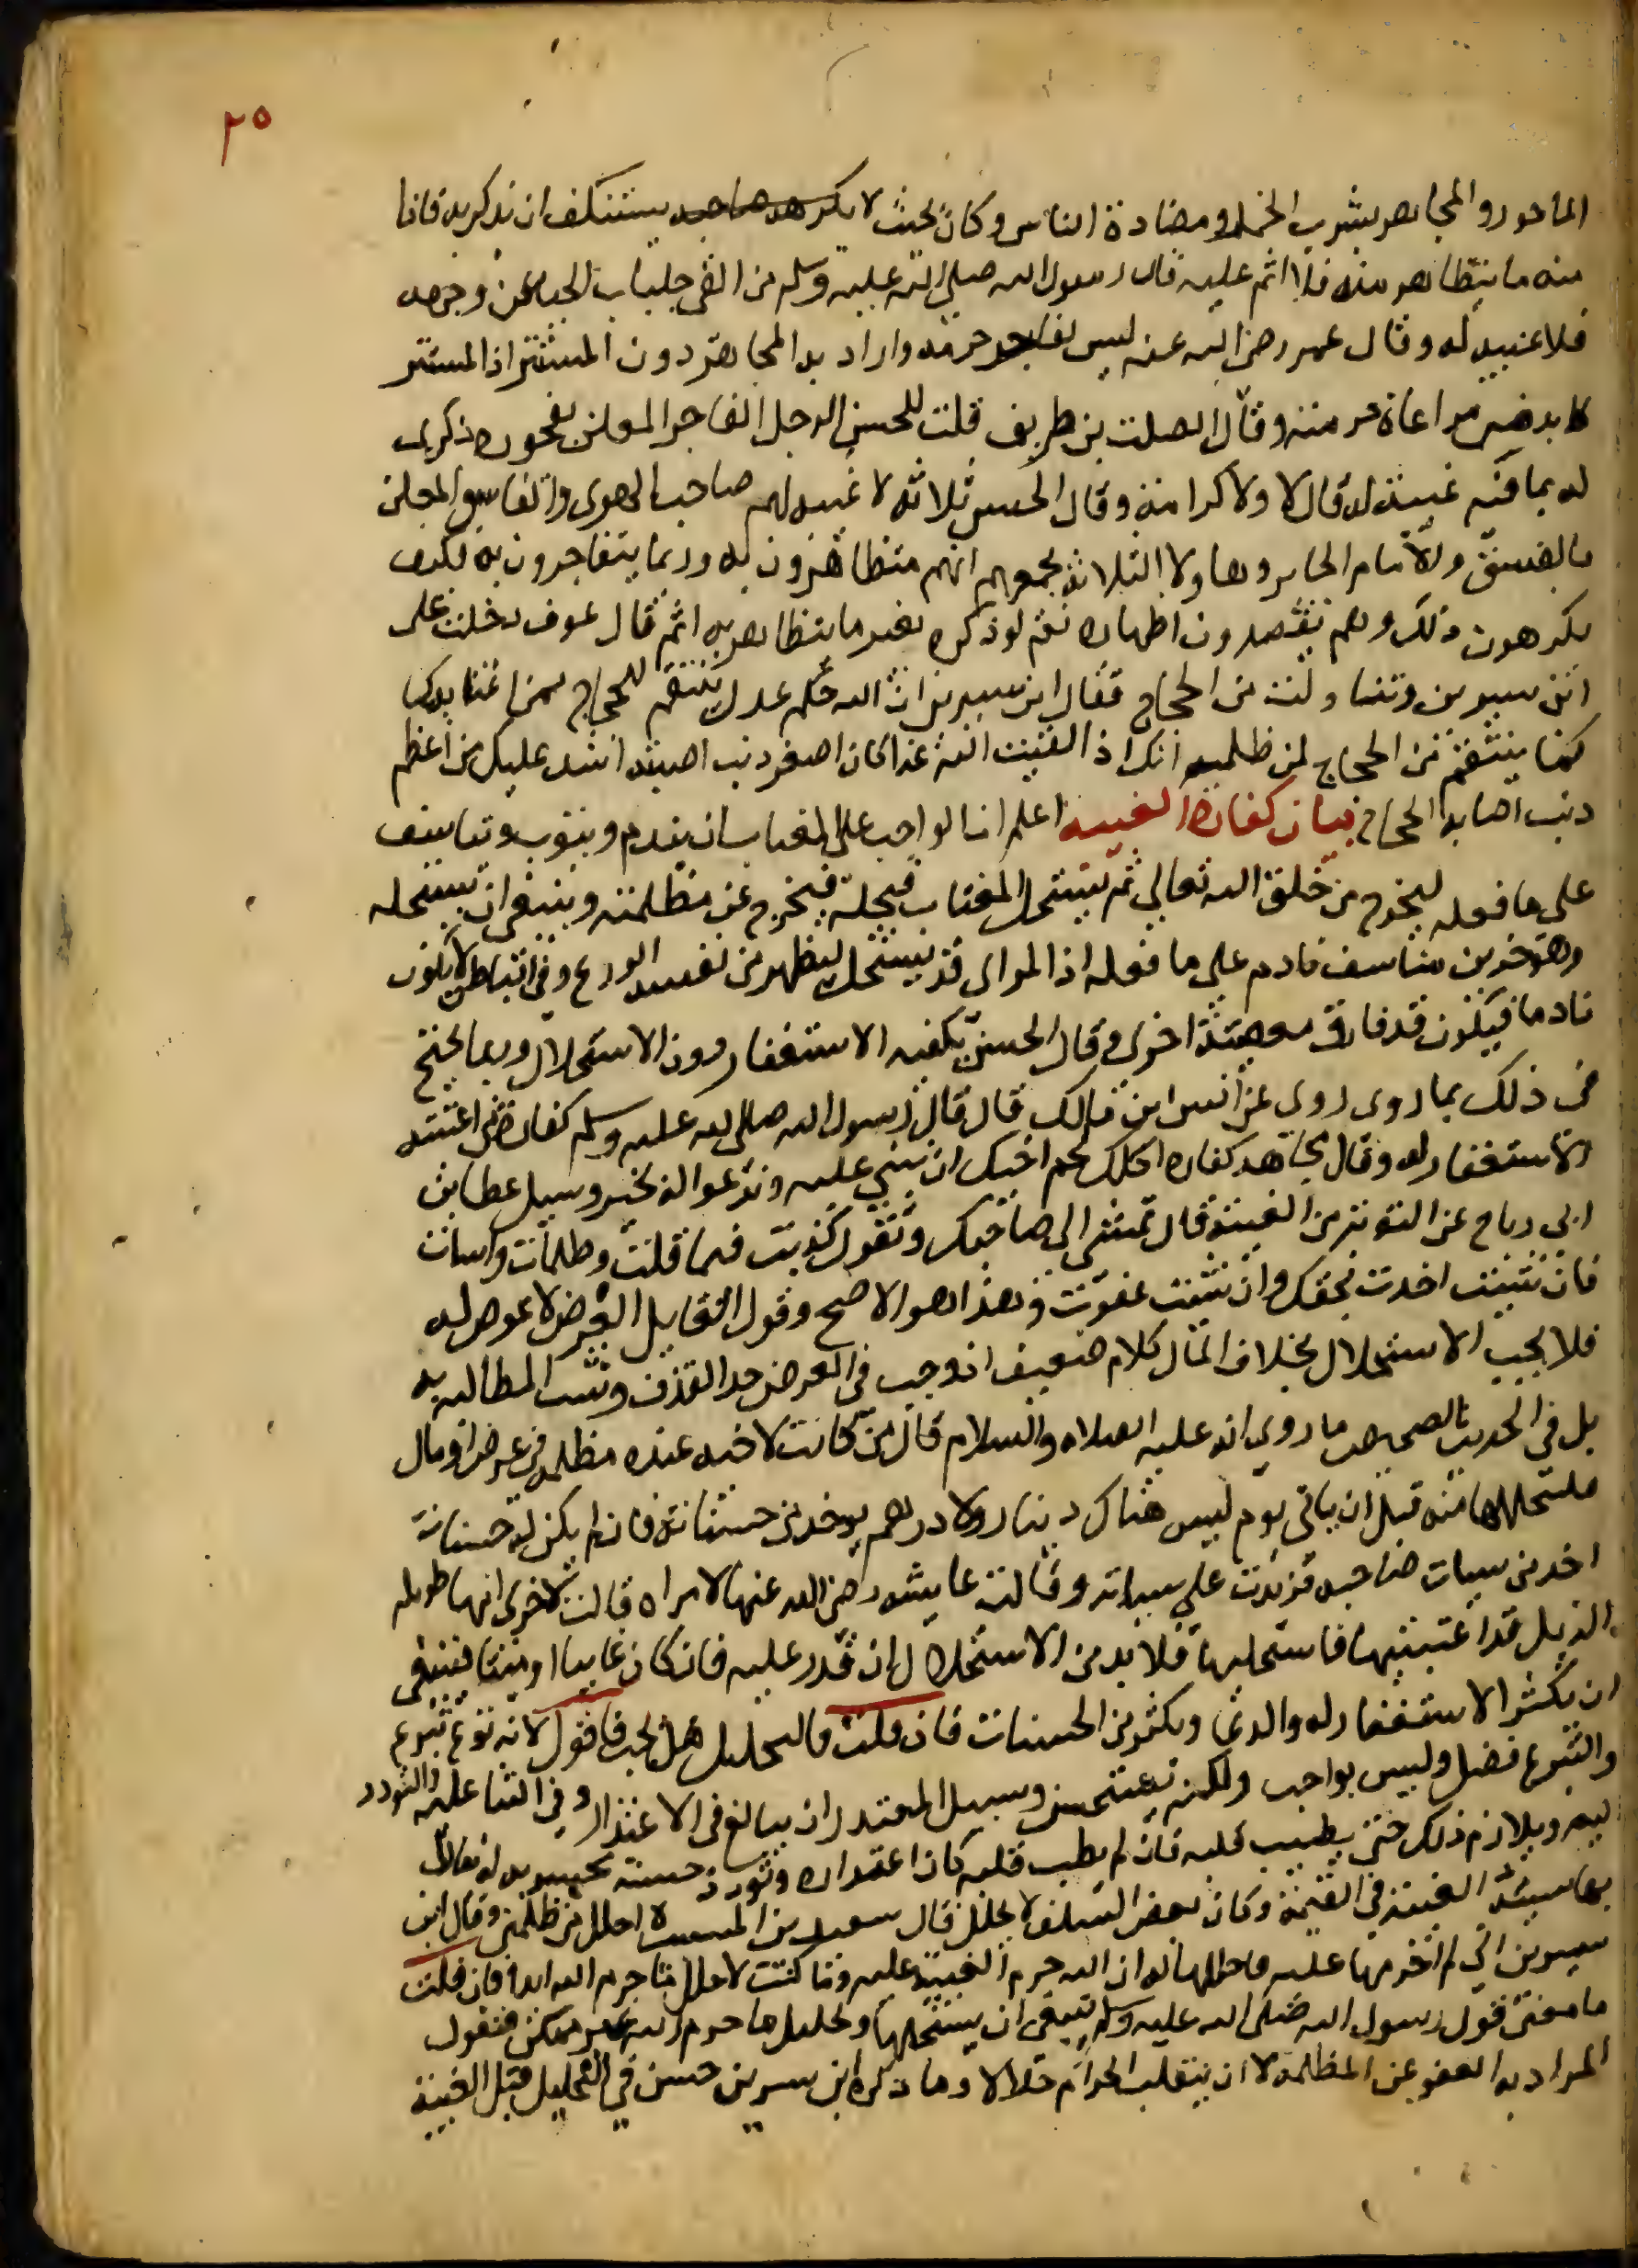 ٢٥
الماخور والمجاهر بشرب الخمر ومصادرة الناس وكان بحيث لا يكره صاحبه يستنكف ان يذكر به فاذا
منه ما يتظاهر منه فلا اثم عليه قال رسول الله صلى الله عليه وسلم من القى جلباب الحيا عن وجهه
فلا غيبة له وقال عمر رضى الله عنه ليس لفاجر حرمة واراد به المجاهر دون المستتر اذ المستتر
لا بد من مراعاة حرمته وقال الصلت بن طريف قلت للحسن الرجل الفاجر المعلن بفجوره ذكرى
له بما فيه غيبة له قال لا ولا كرامة وقال الحسن ثلاثة لا غيبة لهم صاحب الهوى والفاسق المعلن
بالفسق والامام الجاير وهاولا الثلاثة يجمعهم انهم متظاهرون به وربما يتفاخرون به فكيف
يكرهون ذلك وهم يقصدون اظهاره نعم لو ذكره بغير ما يتظاهر به اثم قال عوف دخلت على
ابن سيرين وتناولت من الحجاج فقال ابن سيرين ان الله حكم عدل ينتقم للحجاج ممن اغتابه كما
كما ينتقم من الحجاج لمن ظلمه انك اذا لقيت الله غدا كان اصغر ذنب اصبته اشد عليك من اعظم
ذنب اصابه الحجاج بيان كفارة الغيبة اعلم ان الواجب على المغتاب ان يندم ويتوب ويتاسف
على ما فعله ليخرج من خلق الله تعالى ثم يستحل المغتاب فيحله فيخرج عن مظلمته وينبغى ان يستحله
وهو حزين متاسف نادم على ما فعله اذ المراى قد يستحل ليظهر من نفسه الورع وفى الباطن لا يكون
نادما فيكون قد قارف معصية اخرى وقال الحسن يكفيه الاستغفار دون الاستحلال وربما يحتج
فى ذلك بما روى روى عن انس ابن مالك قال قال رسول الله صلى الله عليه وسلم كفارة من اغتبته
الاستغفار له وقال مجاهد كفارة اكلك لحم اخيك ان تثنى عليه وتدعوا له بخير وسيل عطا بن
ابى رباح عن التوبة من الغيبة قال تمشى الى صاحبك وتقول كذبت فيما قلت وظلمت واسات
فان شيت اخذت بحقك وان شيت عفوت وهذا هو الاصح وقول القايل العرض لا عوض له
فلا يجب الاستحلال بخلاف المال كلام ضعيف اذ وجب فى العرض حد القذف وتثبت المطالبة به
بل فى الحديث الصحيح ما روى انه عليه الصلاه والسلام قال من كانت لاخيه عنده مظلمة فى عرض او مال
فليستحللها منه قبل ان ياتى يوم ليس هناك دينار ولا درهم يوخذ من حسناته فان لم يكن له حسنات
اخذ من سيات صاحبه فزيدت على سياته وقالت عايشة رضى الله عنها لامراة قالت لاخرى انها طويلة
الذيل قد اغتبتيها فاستحليها فلا بد من الاستحلال ان قدر عليه فان كان غايبا او ميتا فينبغى
ان يكثر الاستغفار له والدعا ويكثر من الحسنات فان قلت فالتحليل هل يجب فاقول لا لانه نوع تبرع
والتبرع فضل وليس بواجب ولكنه مستحسن وسبيل المعتذر ان يبالغ فى الاعتذار وفى الثنا عليه والتودد
اليه ويلازم ذلك حتى يطيب قلبه فان لم يطب قلبه كان اعتذاره وتودده حسنة محسوبة له يقابل
بها سيئة الغيبة فى القيمة وكان بعض السلف لا يحلل قال سعيد بن المسيب لا احلل من ظلمنى وقال ابن
سيرين انى لم احرمها عليه فاحللها له ان الله حرم الغيبة عليه وما كنت لاحلل ما حرم الله ابدا فان قلت
ما معنى قول رسول الله صلى الله عليه وسلم ينبغى ان يستحلها وتحليل ما حرم الله غير ممكن فنقول
المراد به العفو عن المظلمة لا ان ينقلب الحرام حلالا وما ذكره ابن سيرين حسن فى التحليل قبل الغيبة